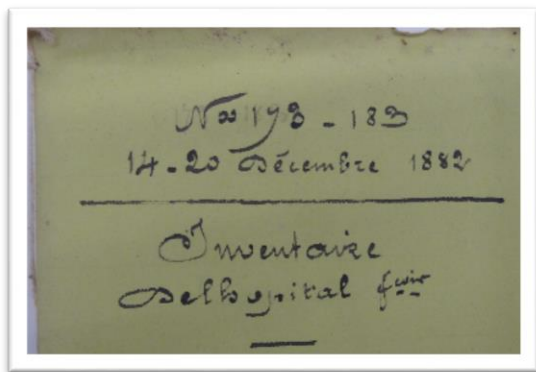 Nos 173 - 183
14-20 Décembre 1882
Inventaire
Delhopital